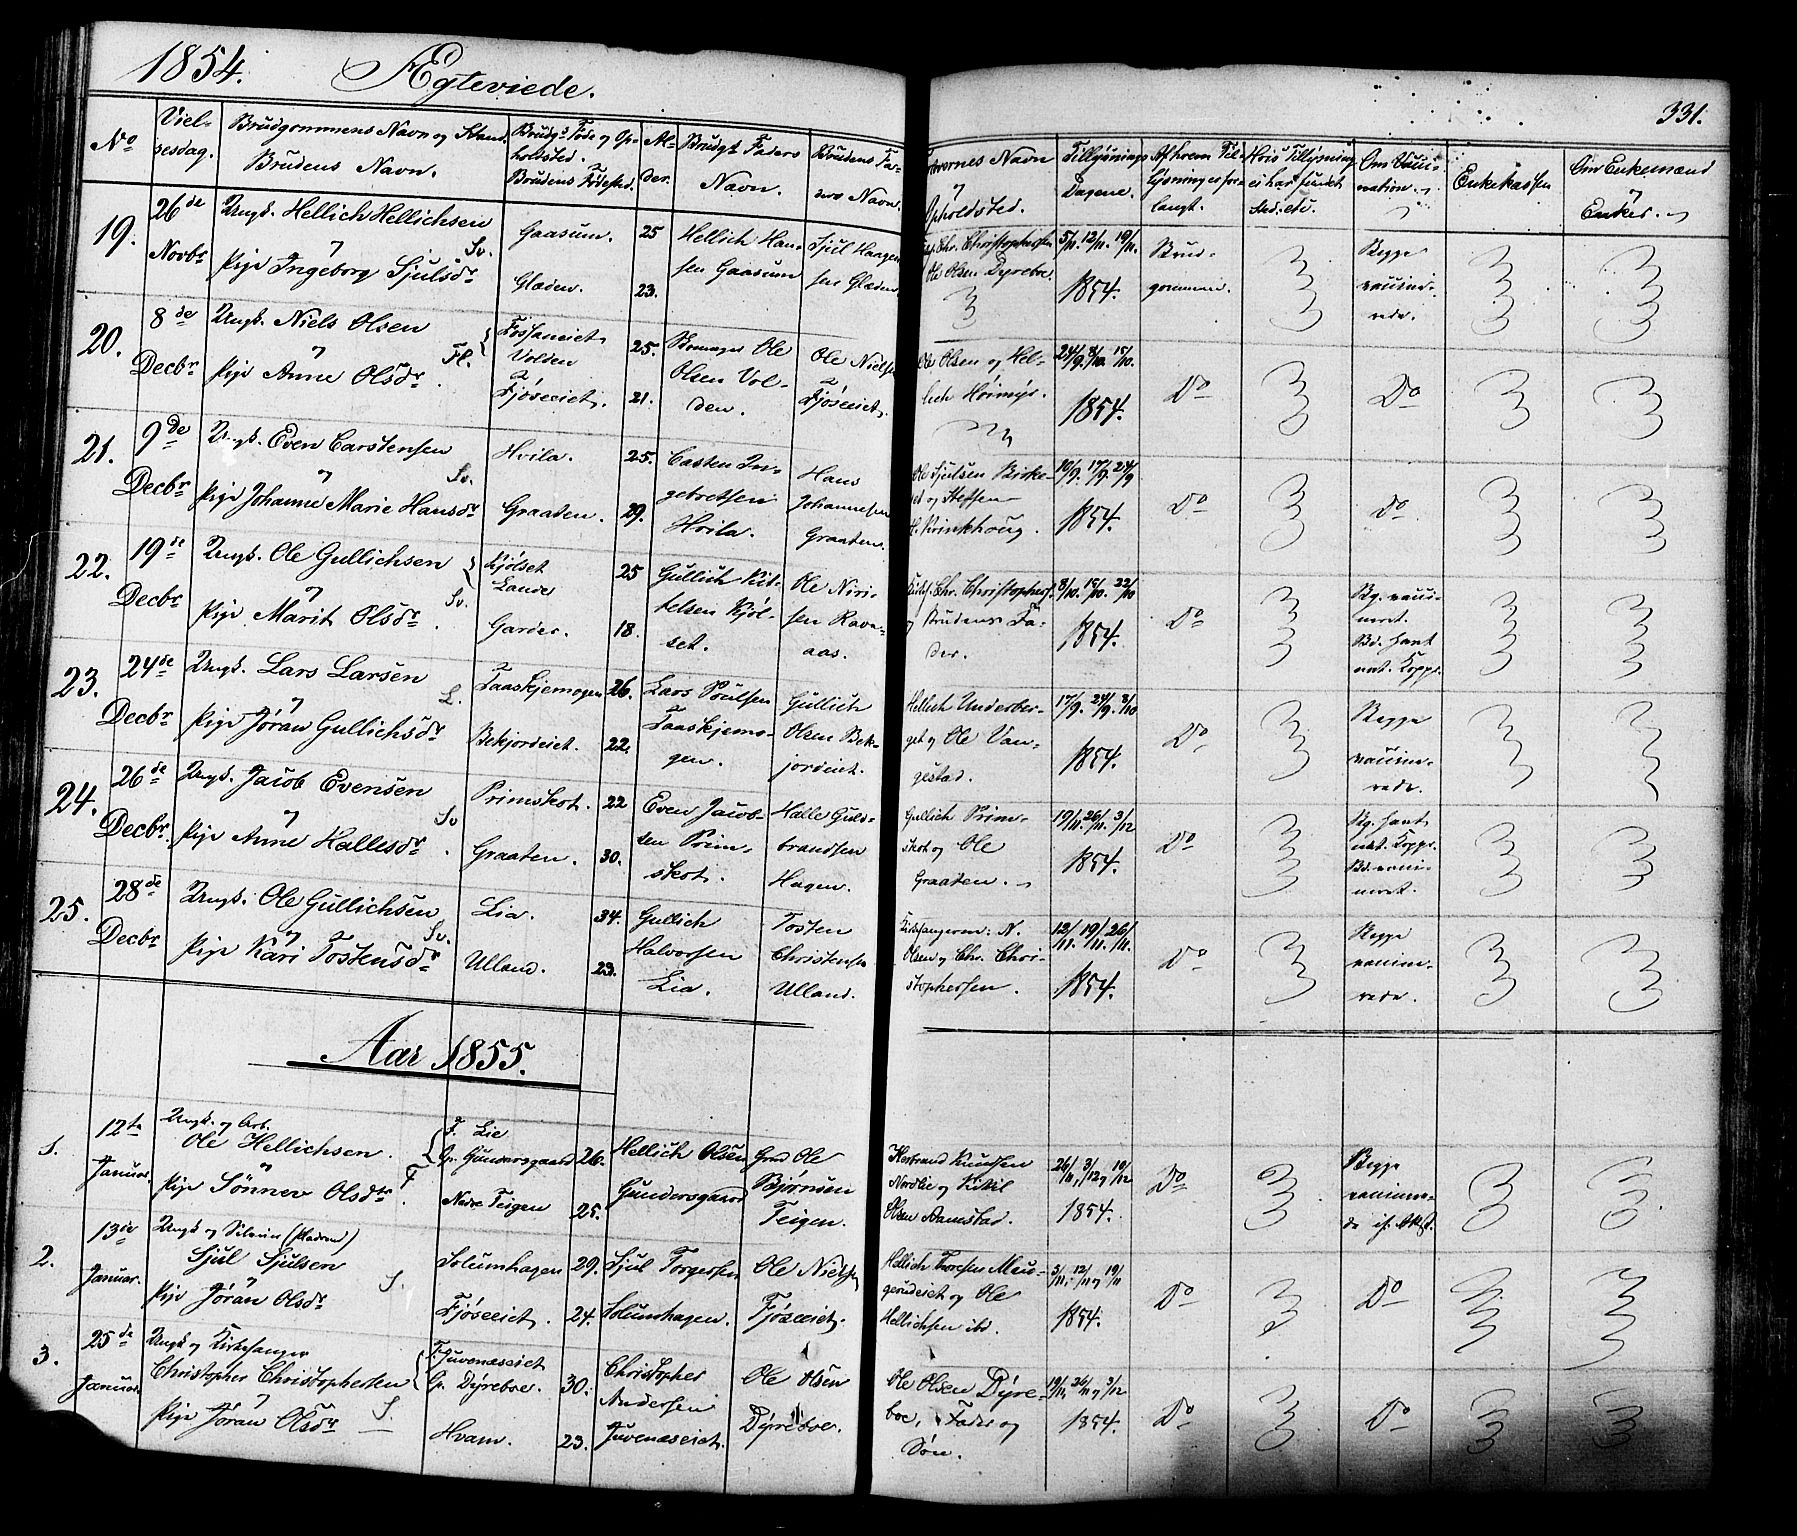 1854. Ægteviede.
331.
No
Viel-
sesdag.
Brudgommens Navn og Stand
Brudens Navn.
Brudgs Føde og Op-
holdsted.
Brudens Fødested.
Al-
der.
Brudgs Faders
Navn.
Brudens Fa-
ders Navn.
Forlovernes Navn
og
Opholdsted.
Tillysnings
Dagene.
Af hvem Til-
lysningen for-
langt.
Hvis Tillysning
ei har fundet
Sted. etc.
Om Vacci-
nation.
Enkekassen
Om Enkemænd
og
Enker.
19.
26de
Novbr
Ungk. Hellich Hellichsen
og Sv.
Pige Ingeborg Sjulsdr
Gaasum.
Glæden.
25
23.
Hellich Han-
sen Gaasum
Sjul Haagen-
sen Glæden.
Chr. Christophersen
Ole Olsen Dyreboe
5/11. 12/11. 19/11.
1854.
Brud-
gommen.
Begge
vaccine-
rede.
20.
8de
Decbr
Ungk. Niels Olsen
og Fl.
Pige Anne Olsdr.
Fossaneiet
Volden
Fjøseeiet.
25.
21.
Ole
Olsen Vol-
den.
Ole Nielsen
Fjøseeiet.
Ole Olsen og Hel-
lich Høimyr.
24/9. 8/10. 15/10.
1854.
Do
Do
21.
9de
Decbr
Ungk. Even Carstensen
og Sv.
Pige Johanne Marie Hansdr
Hvila.
Graaten.
25.
29.
Casten In-
gebretsen
Hvila.
Hans
Johannesen
Graaten.
Ole Sjulsen Birke-
og Steffen
H. Brinkhoug.
10/9. 17/9. 24/9
1854.
Do
Do
22.
19de
Decbr
Ungk. Ole Gullichsen
og Sv.
Pige Marit Olsdr.
Kjølset
Lande
Garder.
25
18.
Gullich Kit-
telsen Kjøl-
set.
Ole Niri-
sen Rava-
aas.
Kirks. Chr. Christophers.
og Brudens Fa-
der.
8/10. 15/10. 22/10
1854.
Do
Bg. vacci-
neret.
Bd. havt
nat. Kopps.
23.
24de
Decbr
Ungk. Lars Larsen
og S.
Pige Jøran Gullichsdr
Taaskjemogen
Bekjordeiet.
26.
22.
Lars Poulsen
Taaskjemo-
gen.
Gullich
Olsen Bek-
jordeiet.
Hellich Underber-
get og Ole Van-
gestad.
17/9. 24/9. 8/10
1854.
Do
Begge
vaccine-
rede.
24.
26de
Decbr.
Ungk. Jacob Evensen
og Sv
Pige Anne Hallesdr.
Primskot.
Graaten.
22
30.
Even Jacob-
sen Prim-
skot.
Halle Guld-
brandsen
Hagen.
Gullich Prim-
skot og Ole
Graaten.
19/11. 26/11. 3/12
1854.
Do
Bg. havt
nat. Kopps.
Bd. vacci-
neret.
25.
28de
Decbr
Ungk. Ole Gullichsen
og Sv.
Pige Kari Tostensdr
Lia.
Ulland.
34.
23.
Gullich
Halvorsen
Lia.
Tosten
Christensen
Ulland.
Kirkesangeren: N.
Olsen og Chr. Chri-
stophersen.
12/11. 19/11. 26/11.
1854.
Do
Begge
vaccine-
rede.
Aar 1855.
1.
12te
Januar.
Ungk. og Arb.
Ole Hellichsen.
og
Pige Sønnev Olsdtr F
F. Lie
Op. Gundersgaard
Nedre Teigen
26.
25.
Hellich Olsen
Gundersgaard
Grd Ole
Bjørnsen
Teigen.
Herbrand Knudsen
Nordlie og Kittil
Olsen Aamestad.
26/11, 3/12 og 10/12
1854.
Do
Begge
vaccinere-
de if. Attest.
2.
13de
Januar.
Ungk og
Sjul Sjulsen
og S.
Pige Jøran Olsdr
Solumhagen
Fjøseeiet.
29.
24.
Sjul Torgersen
Solumhagen.
Ole Nielsen
Fjøseeiet.
Hellich Thoresen Meu-
gerudeiet og Ole
Hellichsen ibd.
5/11, 12/11 og 19/11
1854.
Do
Do
3.
25de
Januar
Ungk og Kirkesanger
Christopher Christophersen
og S.
Pige Jøran Olsdr
F. Juvenæseiet
Op. Dyreboe.
Hvam.
30.
23.
Christopher
Andersen
Juvenæseiet.
Ole Olsen
Dyreboe.
Ole Olsen Dyre-
boe, Fader og
Søn.
19/11, 26/11 og 3/12
1854.
Do
Do